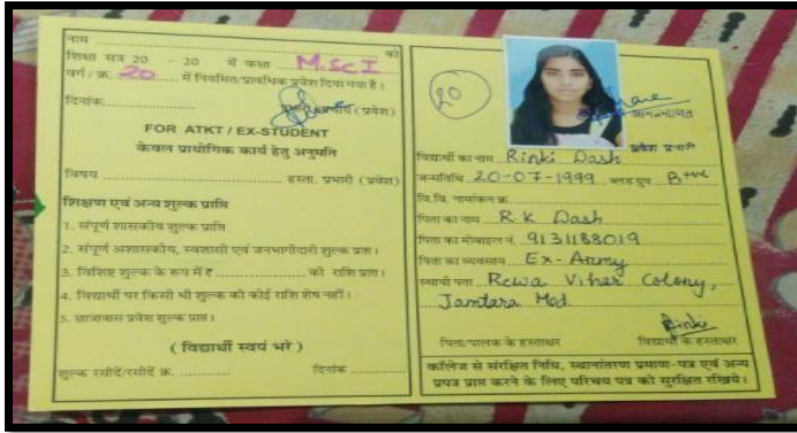 नाम ................ को
शिक्षा सत्र 20 - 20 में कक्षा M.Sc I
वर्ग / क्र. 20 में नियमित/प्रावधिक प्रवेश दिया गया है।
दिनांक................ (प्रवेश)
FOR ATKT / EX-STUDENT
केवल प्रायोगिक कार्य हेतु अनुमति
विषय ................ हस्ता. प्रभारी (प्रवेश)
शिक्षण एवं अन्य शुल्क प्राप्ति
1. संपूर्ण शासकीय शुल्क प्राप्ति
2. संपूर्ण अशासकीय, स्वशासी एवं जनभागीदारी शुल्क प्राप्त।
3. विशिष्ट शुल्क के रूप में ₹ ................ की राशि प्राप्त।
4. विद्यार्थी पर किसी भी शुल्क की कोई राशि शेष नहीं।
5. छात्रावास प्रवेश शुल्क प्राप्त।
( विद्यार्थी स्वयं भरे )
शुल्क रसीदें/रसीदें क्र. ............ दिनांक ............
20
प्रवेश प्रभारी
विद्यार्थी का नाम Rinki Dash
जन्मतिथि 20-07-1999 ब्लड ग्रुप B+ve
वि.वि. नामांकन क्र.
पिता का नाम R.K Dash
पिता का मोबाइल नं. 9131188019
पिता का व्यवसाय Ex-Army
स्थायी पता Rewa Vihar Colony,
Jamtara Mod
Rinki
पिता/पालक के हस्ताक्षर विद्यार्थी के हस्ताक्षर
कॉलेज से संरक्षित निधि, स्थानांतरण प्रमाण-पत्र एवं अन्य
प्रपत्र प्राप्त करने के लिए परिचय पत्र को सुरक्षित रखिये।